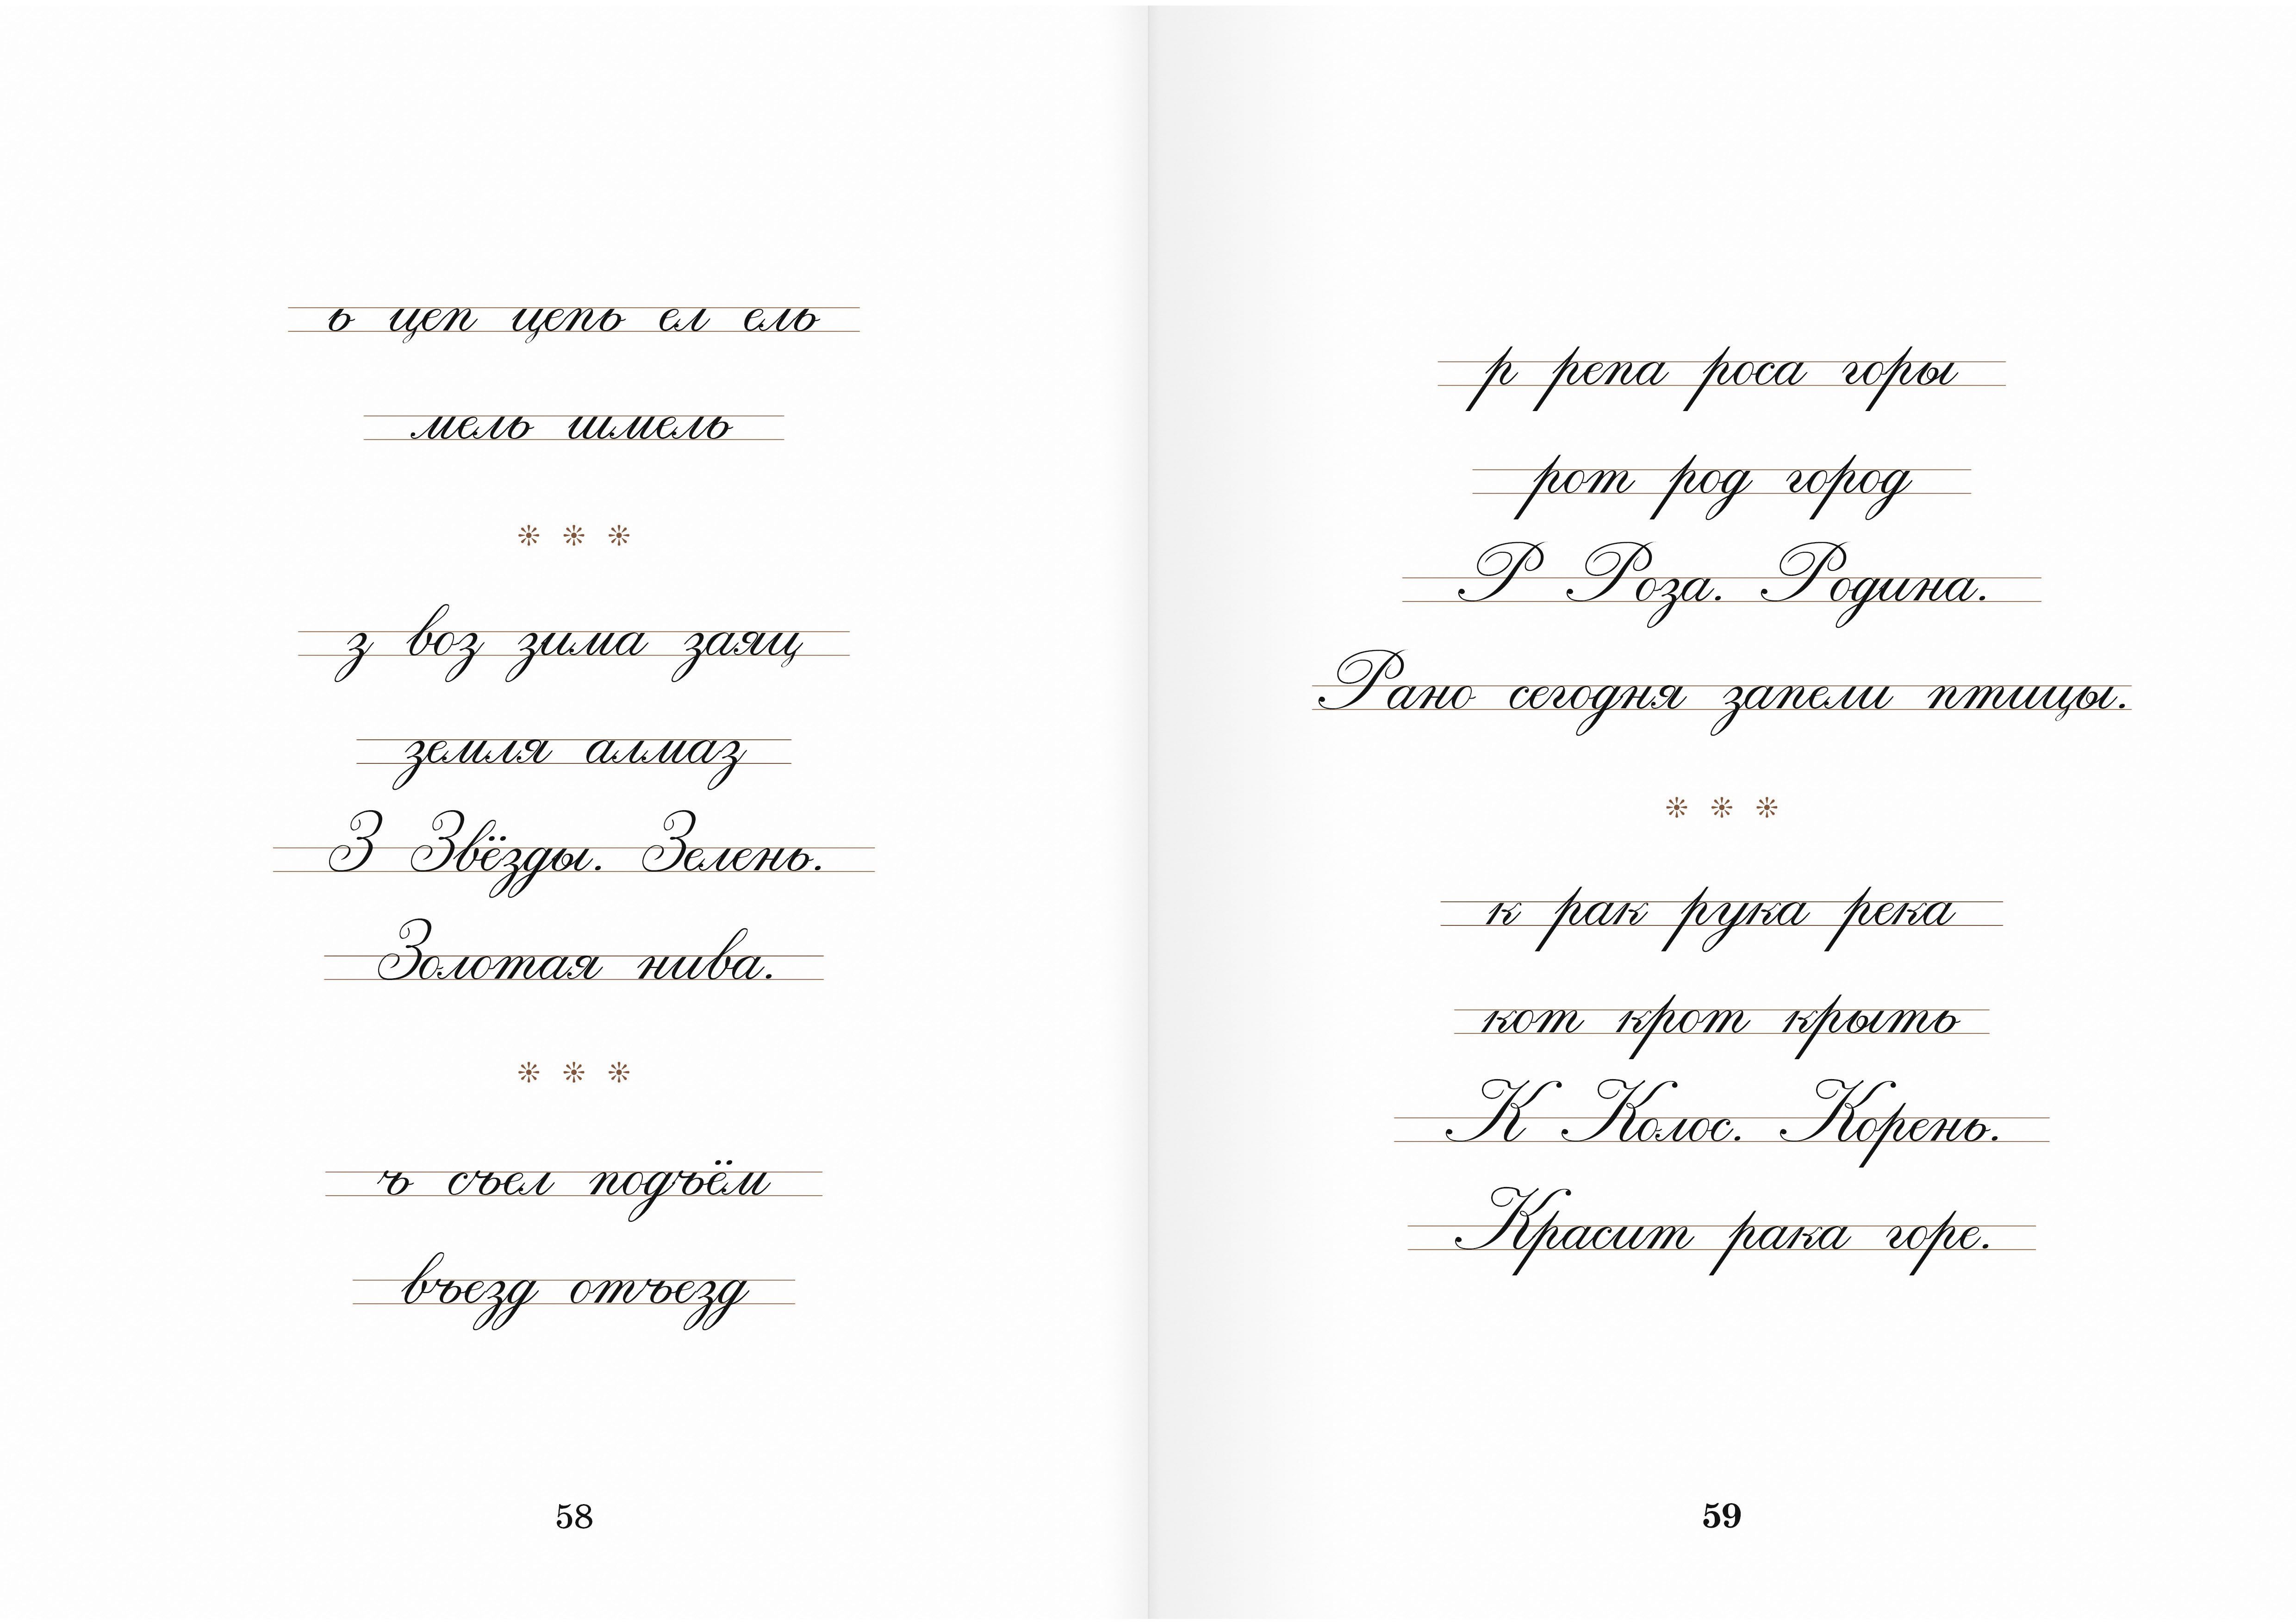 ь цеп цепь ел ель
мель шмель
з воз зима заяц
земля алмаз
З Звёзды. Зелень.
Золотая нива.
ъ съел подъём
въезд отъезд
58
р репа роса горы
рот род город
Р Роза. Родина.
Рано сегодня запели птицы.
к рак рука река
кот крот крыть
К Колос. Корень.
Красит рака горе.
59